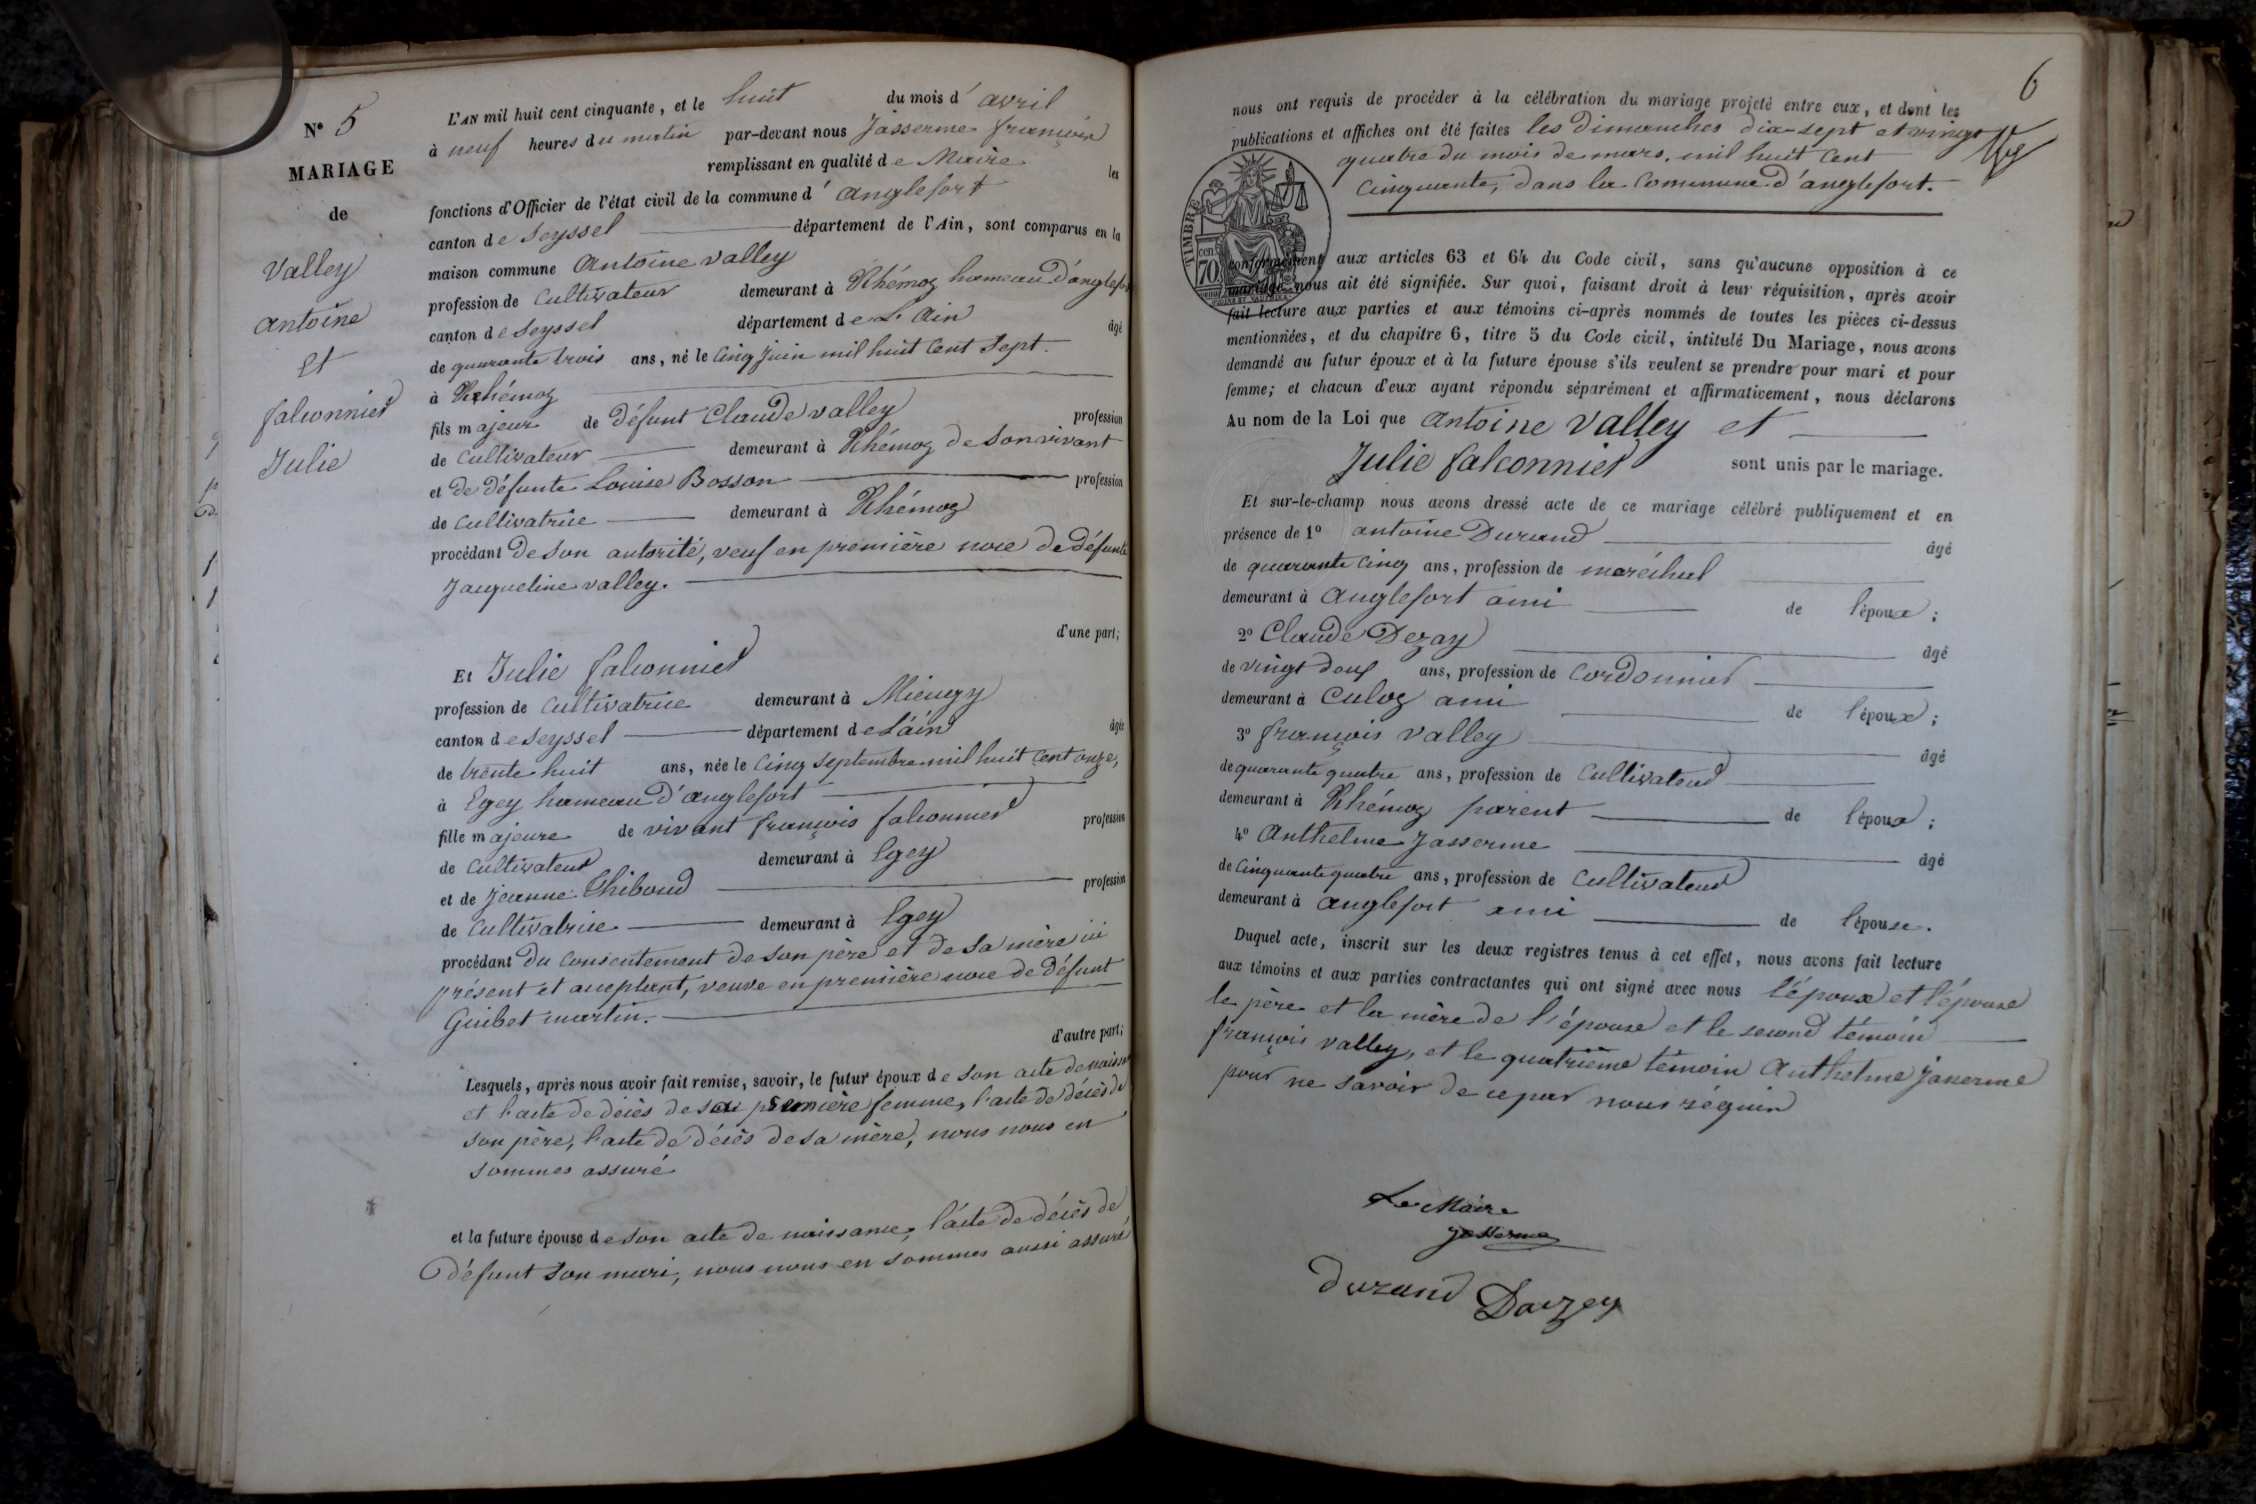 N° 5
MARIAGE
de
Valley
antoine
et
falconnier
Julie
L'AN mil huit cent cinquante, et le huit du mois d'avril
à neuf heures du matin par-devant nous Jasserme françois
remplissant en qualité de Maire les
fonctions d'Officier de l'état civil de la commune d'anglefort
canton de Seyssel département de l'Ain, sont comparus en la
maison commune antoine valley
profession de Cultivateur demeurant à Rhémoz hameau d'anglefort
canton de Seyssel département de L'Ain âgé
de quarante trois ans, né le Cinq Juin mil huit Cent Sept.
à Rhémoz
fils majeur de défunt Claude valley profession
de Cultivateur demeurant à Rhémoz de Son vivant
et de défunte Louise Bosson profession
de Cultivatrice demeurant à Rhémoz
procédant de Son autorité, veuf en première noce de défunte
Jaqueline valley.
d'une part;
Et Julie falconnier
profession de Cultivatrice demeurant à Mieugy
canton de Seyssel département de L'ain âgée
de trente huit ans, née le Cinq Septembre mil huit Cent onze,
à Egey hameau d'anglefort
fille majeure de vivant françois falconnier profession
de Cultivateur demeurant à Egey
et de Jeanne Thiboud profession
de Cultivatrice demeurant à Egey
procédant du Consentement de Son père et de Sa mère ici
présent et acceptant, veuve en première noce de défunt
Guibet martin.
d'autre part;
Lesquels, après nous avoir fait remise, savoir, le futur époux de Son acte de naiss
et l'acte de décès de sa première femme, l'acte de décès de
Son père, l'acte de décès de Sa mère, nous nous en
Sommes assuré
et la future épouse de Son acte de naissance, l'acte de décès de
défunt Son mari, nous nous en Sommes aussi assuré
6
nous ont requis de procéder à la célébration du mariage projeté entre eux, et dont les
publications et affiches ont été faites les Dimanches dix-sept et vingt
quatre du mois de mars, mil huit Cent
Cinquante, dans la Commune d'anglefort.
TIMBRE
70
conformément aux articles 63 et 64 du Code civil, sans qu'aucune opposition à ce
mariage nous ait été signifiée. Sur quoi, faisant droit à leur réquisition, après avoir
fait lecture aux parties et aux témoins ci-après nommés de toutes les pièces ci-dessus
mentionnées, et du chapitre 6, titre 5 du Code civil, intitulé Du Mariage, nous avons
demandé au futur époux et à la future épouse s'ils veulent se prendre pour mari et pour
femme; et chacun d'eux ayant répondu séparément et affirmativement, nous déclarons
Au nom de la Loi que antoine valley et
Julie falconnier sont unis par le mariage.
Et sur-le-champ nous avons dressé acte de ce mariage célébré publiquement et en
présence de 1° antoine Durand âgé
de quarante Cinq ans, profession de maréchal
demeurant à anglefort ami de l'époux;
2° Claude Dezay âgé
de vingt deux ans, profession de Cordonnier
demeurant à Culoz ami de l'époux;
3° françois valley âgé
de quarante quatre ans, profession de Cultivateur
demeurant à Rhémoz parent de l'époux;
4° Anthelme Jasserme âgé
de Cinquante quatre ans, profession de Cultivateur
demeurant à anglefort ami de l'épouse.
Duquel acte, inscrit sur les deux registres tenus à cet effet, nous avons fait lecture
aux témoins et aux parties contractantes qui ont signé avec nous l'époux et l'épouse
le père et la mère de l'épouse et le second témoin
françois valley, et le quatrième témoin Anthelme Jasserme
pour ne savoir de ce par nous réquis
Le Maire
Jasserme
durand Daizey